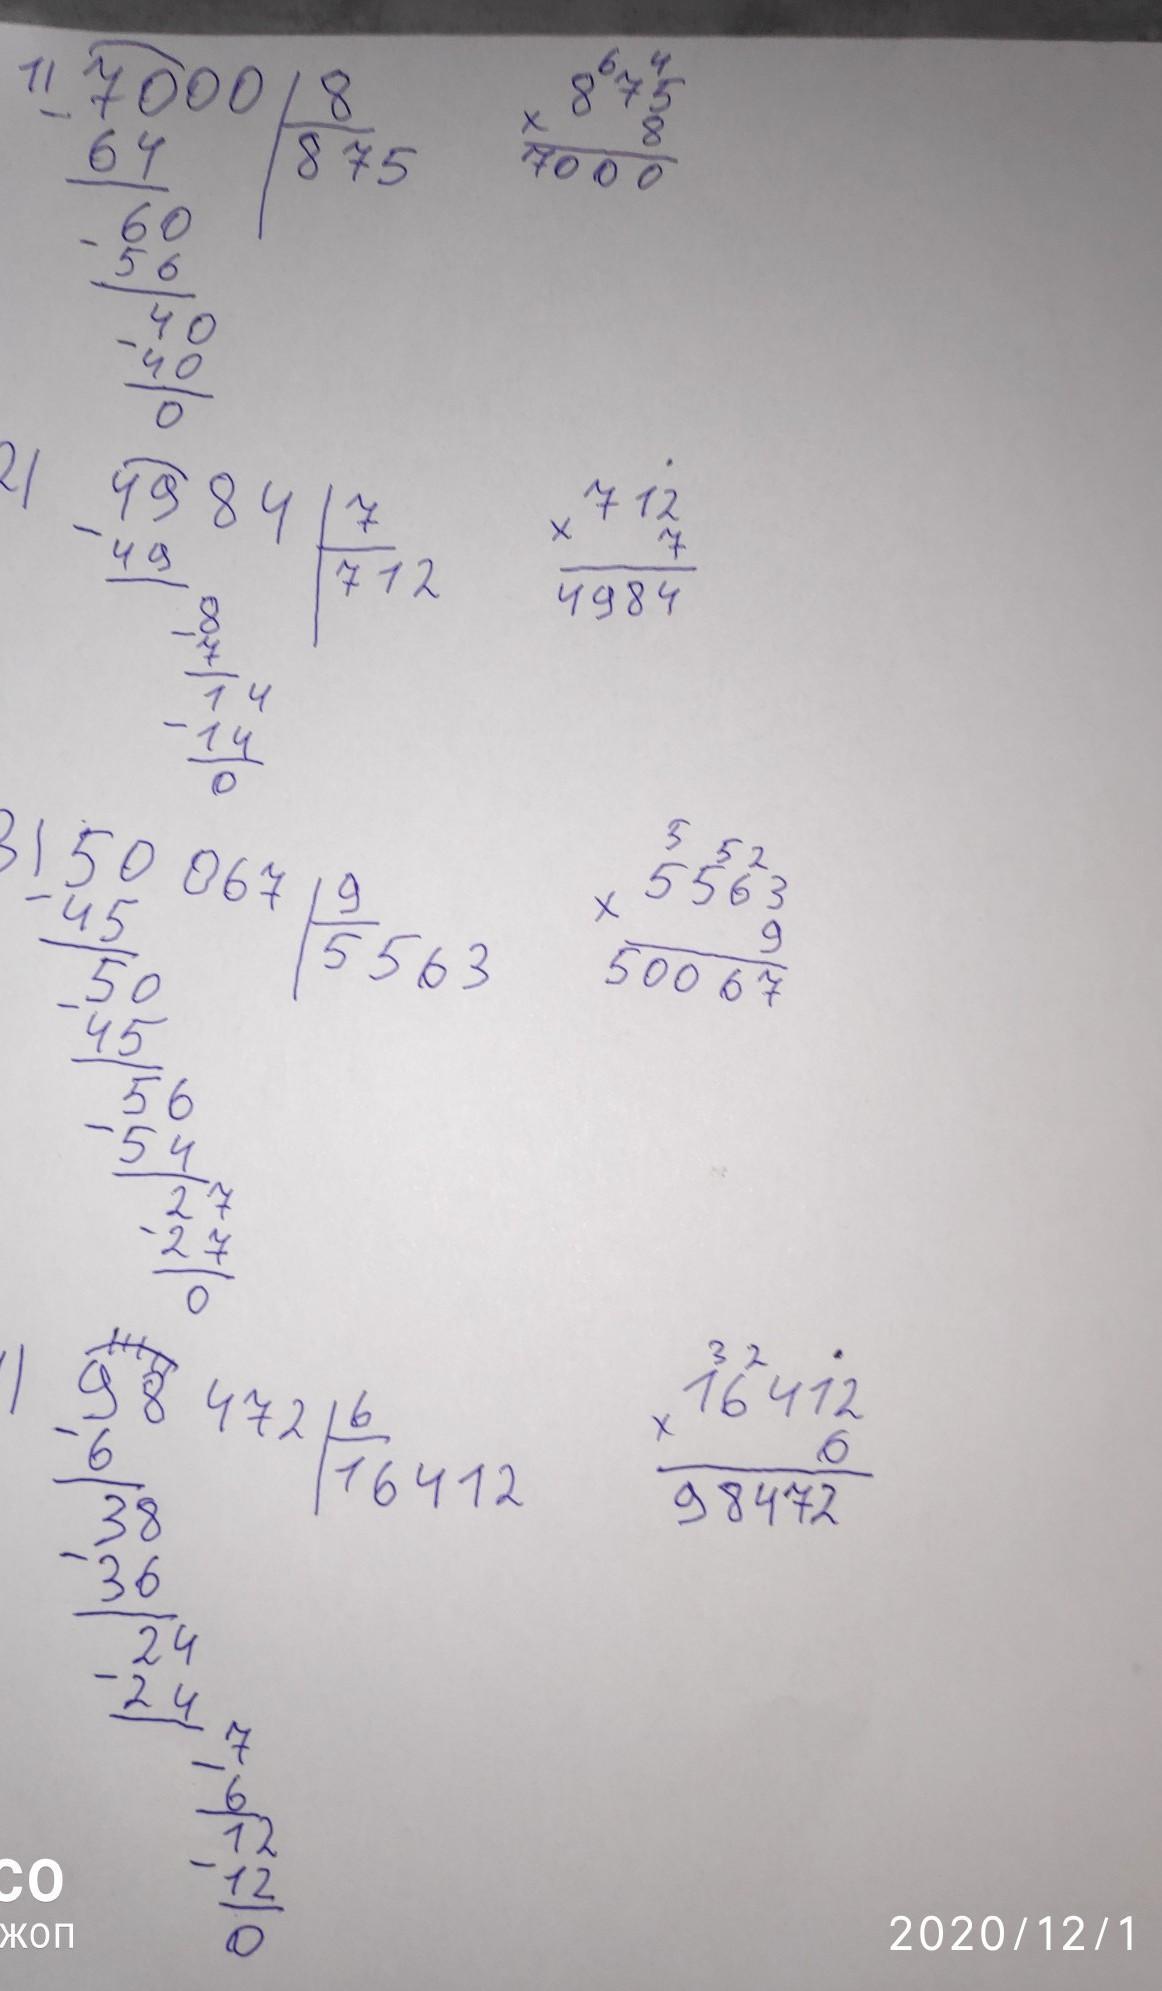 1) 7000 | 8      8 ⁶7 ⁴5
- 64 | 875      × 8
60      7000
- 56
40
- 40
0
2) 4984 | 7      × 712
- 49 | 712      7
8      4984
- 7
14
- 14
0
3) 50 067 | 9      5 5 2
- 45 | 5563      × 5563
50      9
- 45      50067
56
- 54
27
- 27
0
) 98 472 | 6      3 2
- 6 | 16412      × 16412
38      6
- 36      98472
24
- 24
7
- 6
12
- 12
0
со
жоп
2020/12/1